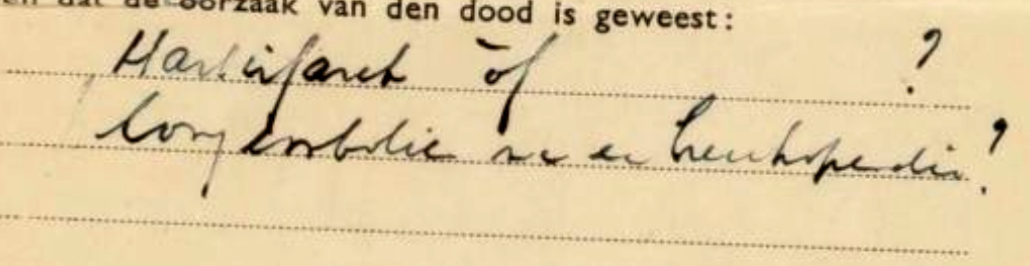 en dat de oorzaak van den dood is geweest:
Hartinfarct òf ?
longembolie na een breukoperatie?